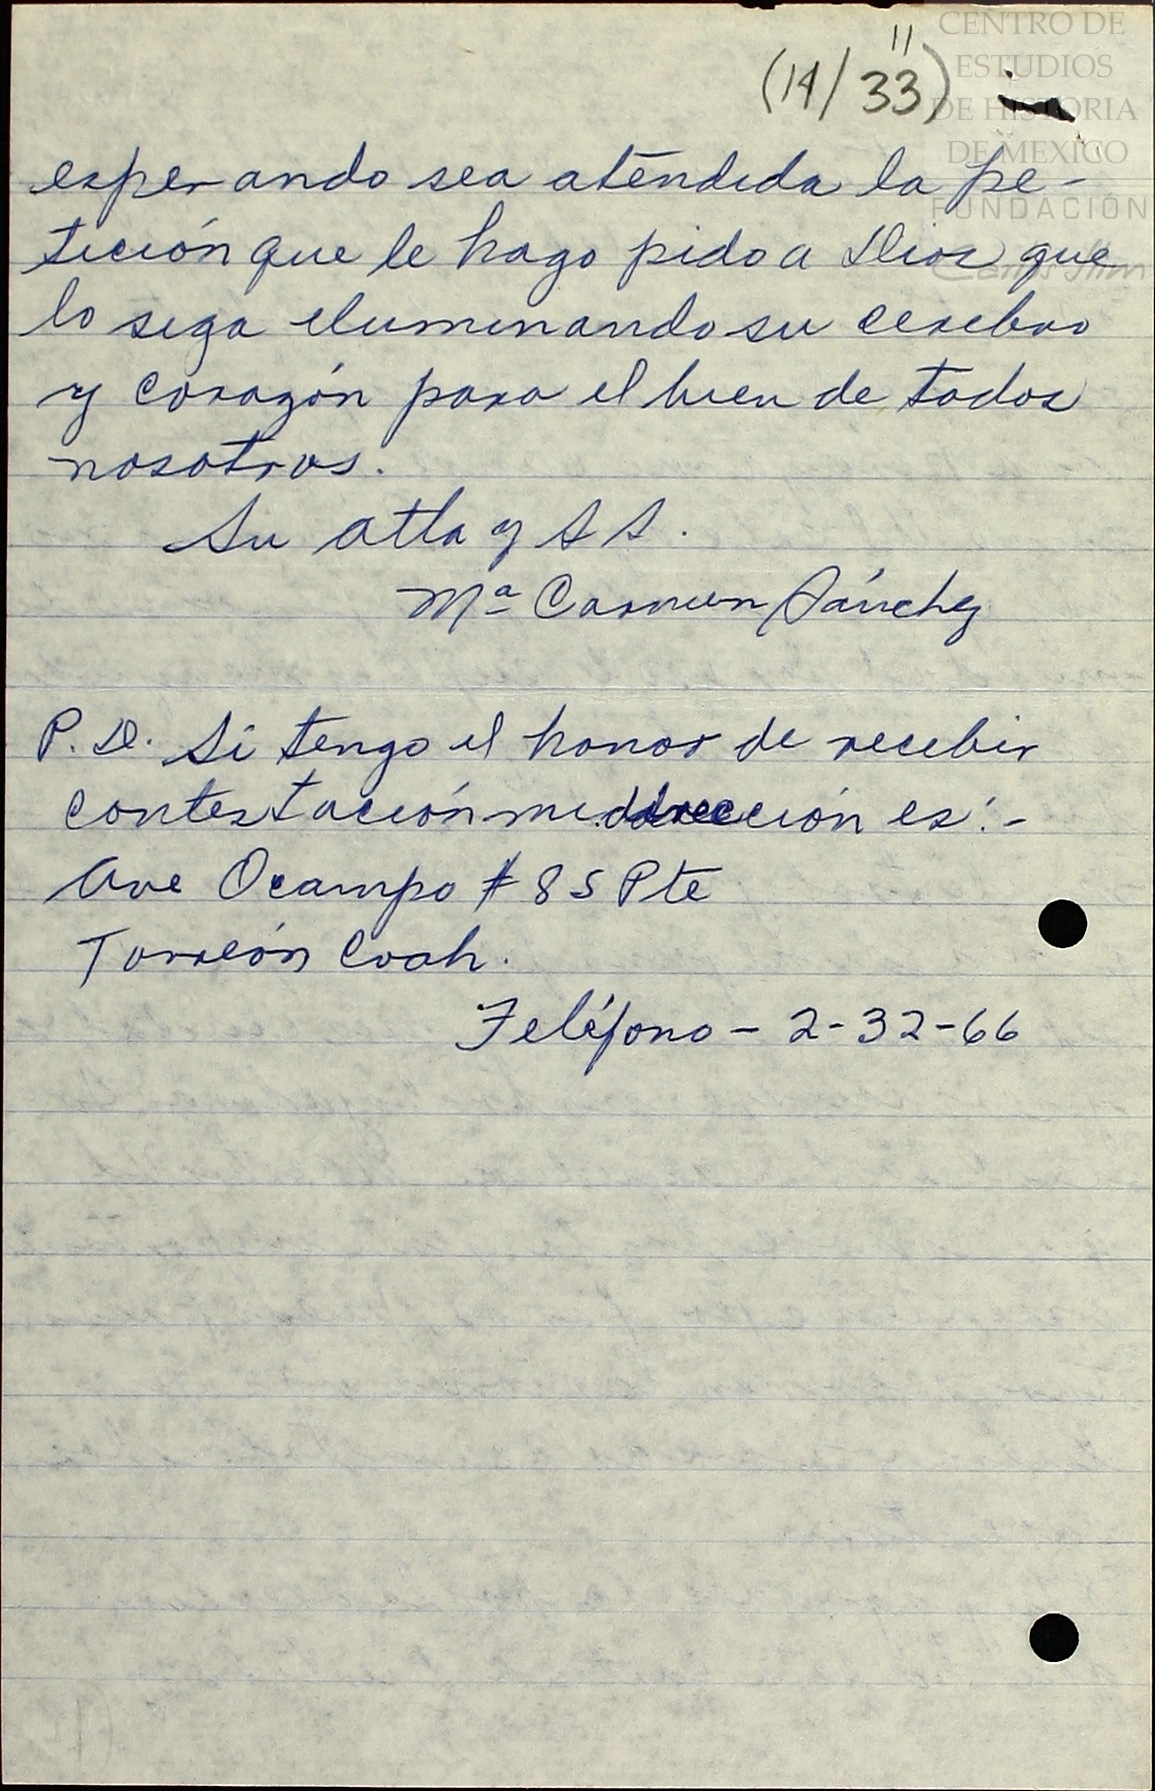 CENTRO DE
ESTUDIOS
DE HISTORIA
DE MEXICO
FUNDACIÓN
Carlos Slim
11
(14/33)
esperando sea atendida la pe-
tición que le hago pido a Dios que
lo siga iluminando su cerebro
y corazón para el bien de todos
nosotros.
Su atta y S S.
Mª Carmen Sánchez
P.D. Si tengo el honor de recibir
contestación mi dirección es:-
Ave Ocampo # 85 Pte
Torreón Coah.
Teléfono - 2-32-66